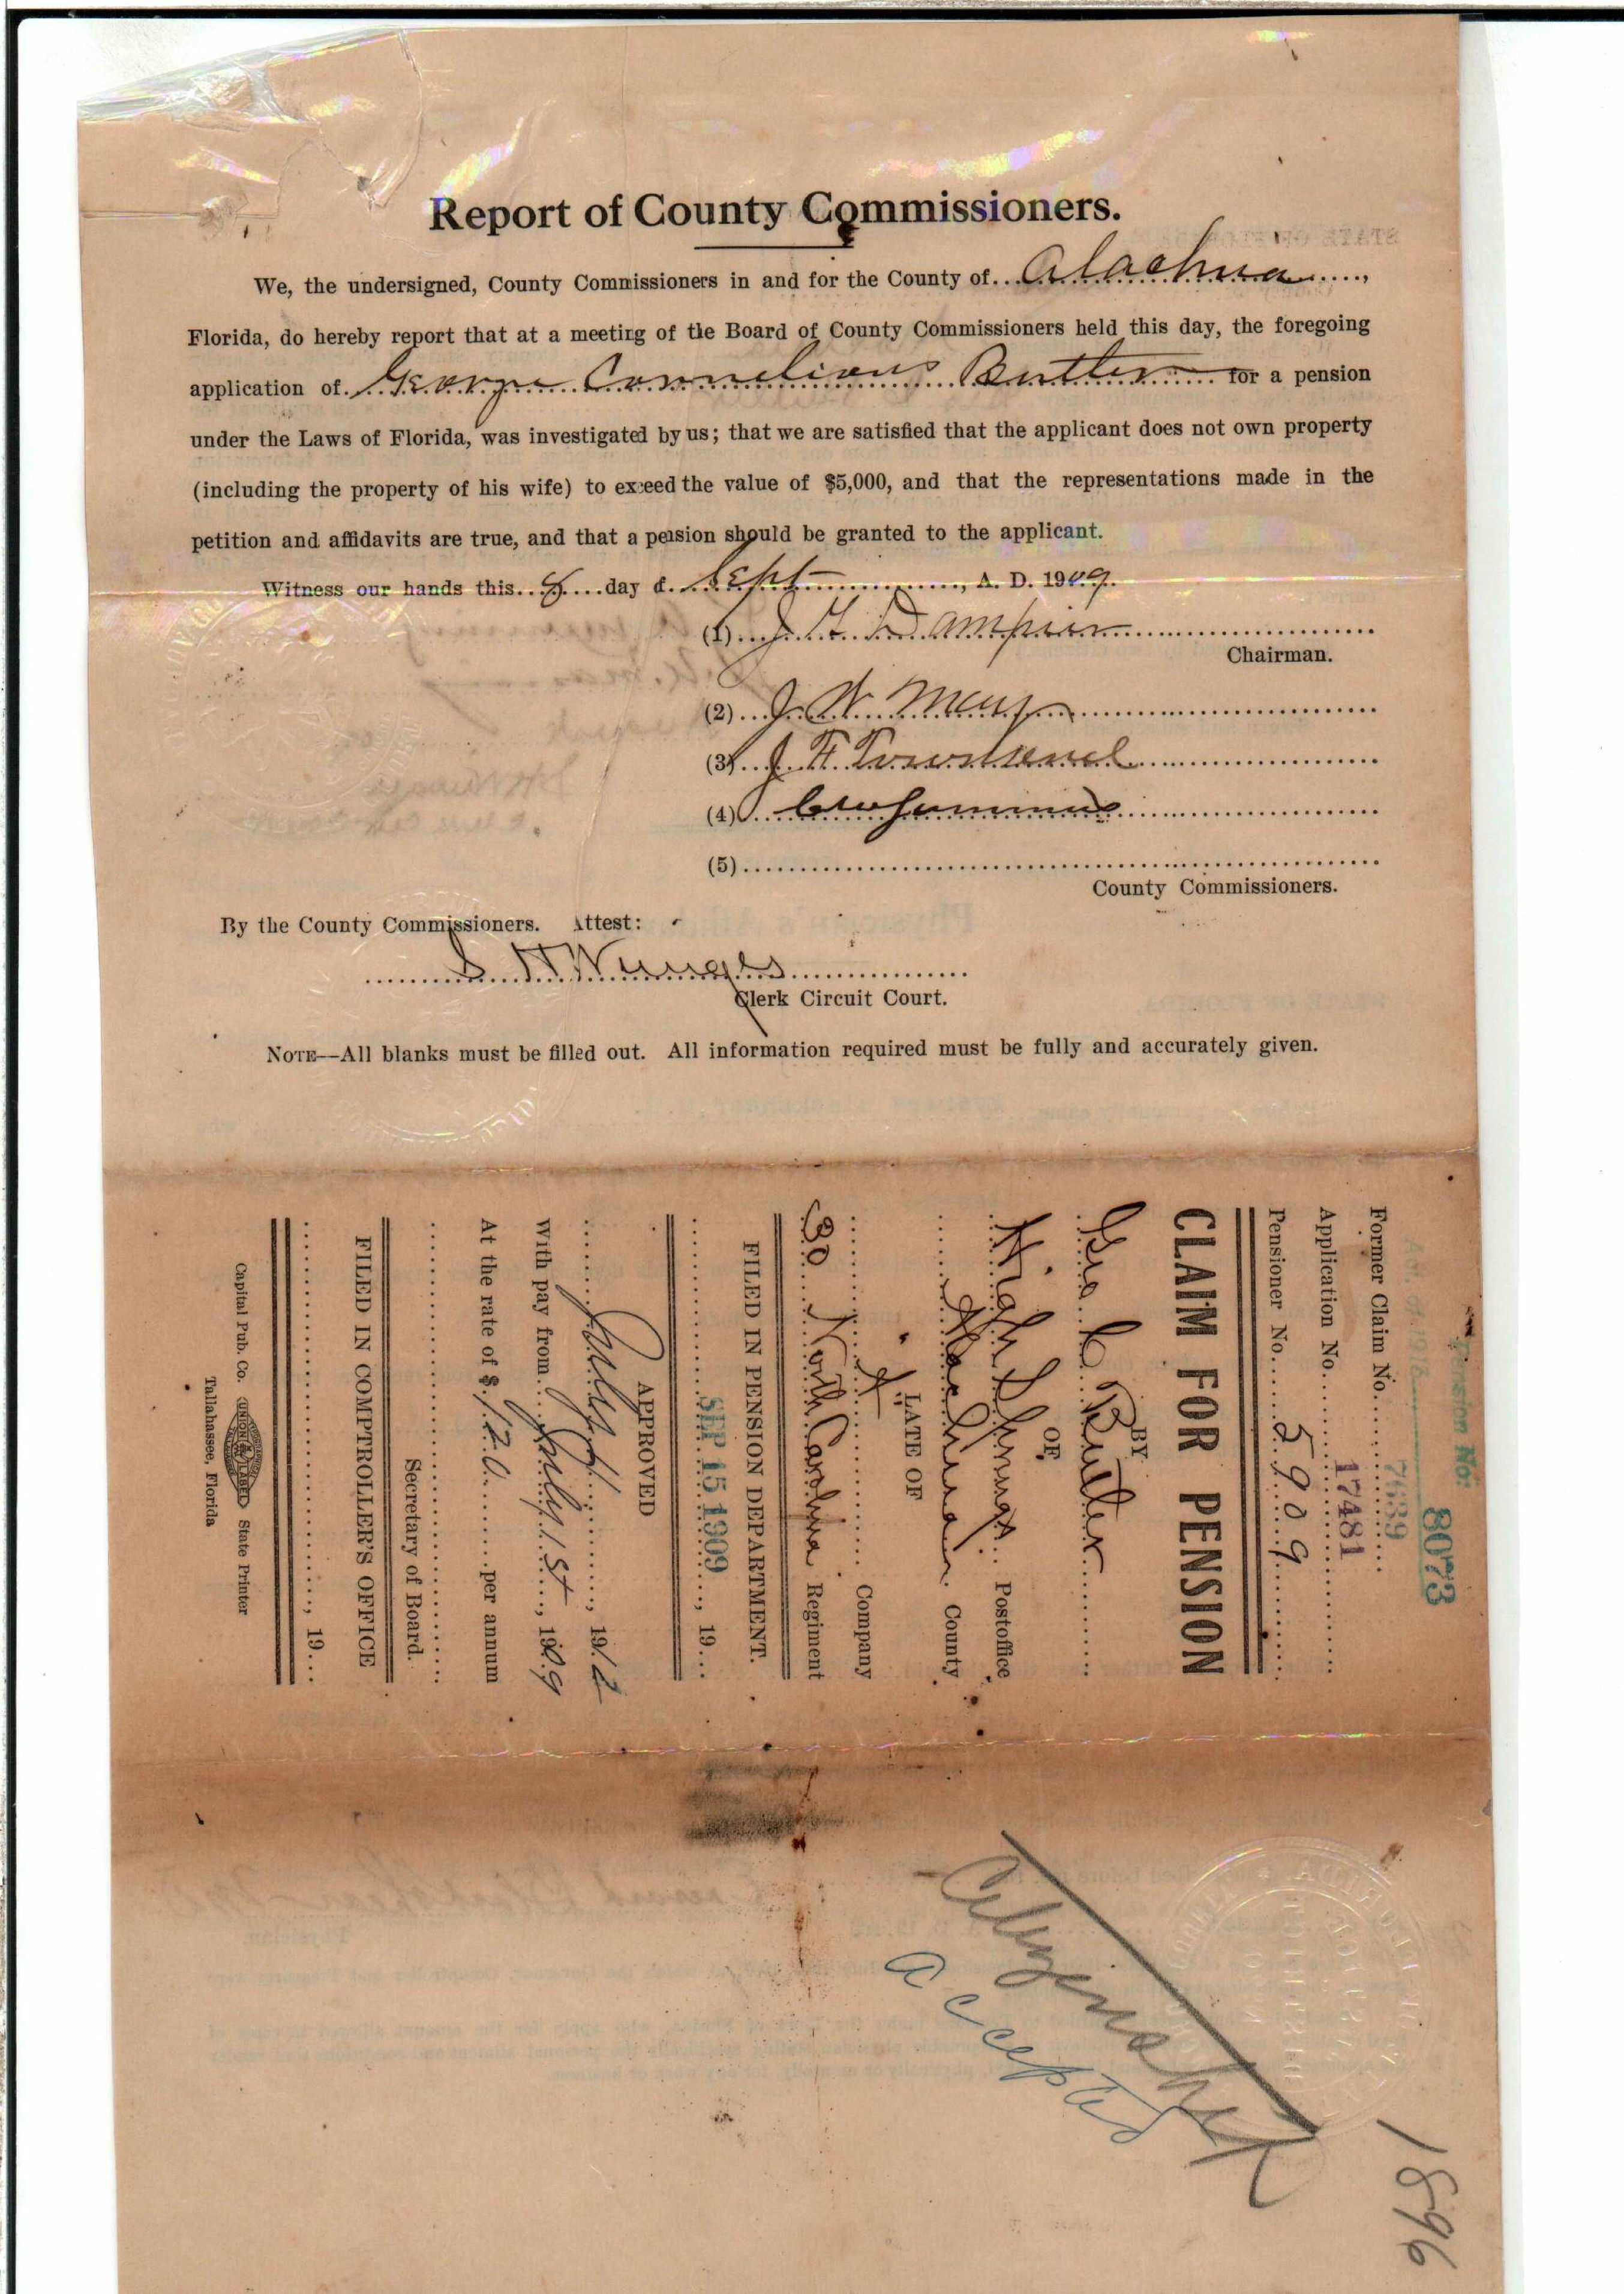 Report of County Commissioners.
We, the undersigned, County Commissioners in and for the County of Alachua,
Florida, do hereby report that at a meeting of the Board of County Commissioners held this day, the foregoing
application of George Cornelious Butler for a pension
under the Laws of Florida, was investigated by us; that we are satisfied that the applicant does not own property
(including the property of his wife) to exceed the value of $5,000, and that the representations made in the
petition and affidavits are true, and that a pension should be granted to the applicant.
Witness our hands this 8 day of Sept, A. D. 1909.
(1) J. G. Dampier
Chairman.
(2) J. W. May
(3) J F Townsend
(4)
(5)
County Commissioners.
By the County Commissioners. Attest:
S. H Wienges
Clerk Circuit Court.
NOTE--All blanks must be filled out. All information required must be fully and accurately given.
Pension No. 8073
Act of 1913
Former Claim No. 7639
Application No. 17481
Pensioner No. 5909
CLAIM FOR PENSION
BY
Geo C Butler
OF
High Springs Postoffice
Alachua County
LATE OF
Company
30 North Carolina Regiment
FILED IN PENSION DEPARTMENT.
SEP 15 1909, 19
APPROVED
July 4, 1912
With pay from July 1st, 1909
At the rate of $120 per annum
Secretary of Board.
FILED IN COMPTROLLER'S OFFICE
, 19
Capital Pub. Co. UNION LABEL State Printer
Tallahassee, Florida
accepted
1896